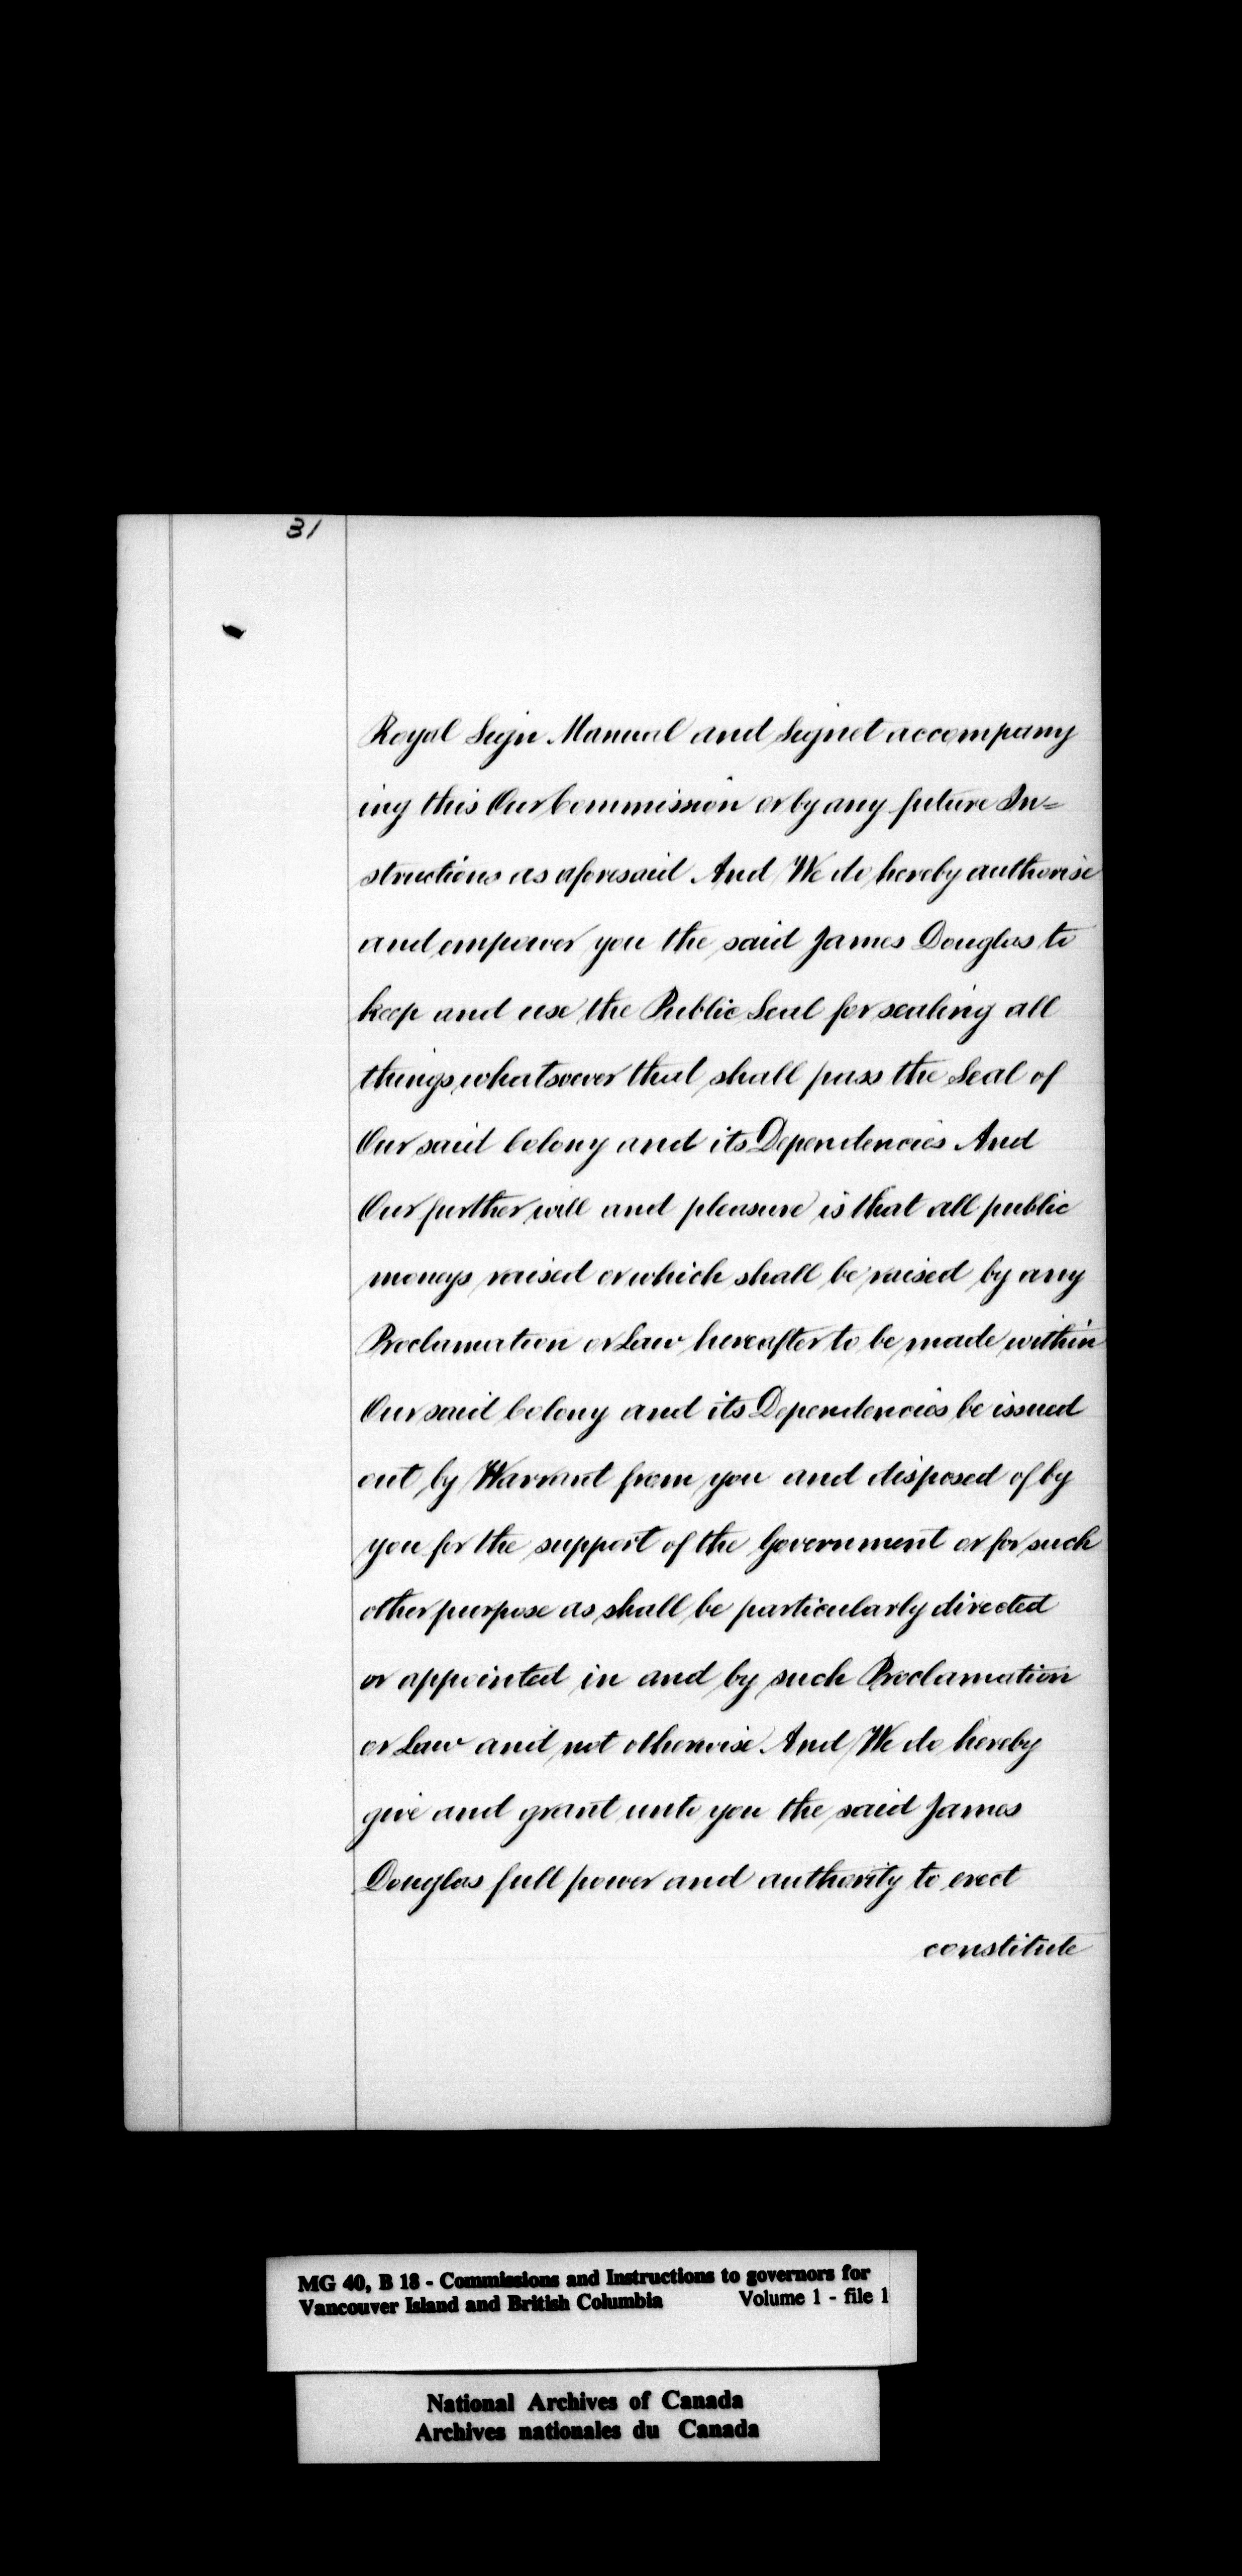 31
Royal Sign Manual and Signet accompany
ing this Our Commission or by any future In=
structions as aforesaid And We do hereby authorise
and empower you the said James Douglas to
keep and use the Public Seal for sealing all
things whatsoever that shall pass the Seal of
Our said Colony and its Dependencies And
Our further will and pleasure is that all public
moneys raised or which shall be raised by any
Proclamation or Law hereafter to be made within
Our said Colony and its Dependencies be issued
out by Warrant from you and disposed of by
you for the support of the Government or for such
other purpose as shall be particularly directed
or appointed in and by such Proclamation
or Law and not otherwise And We do hereby
give and grant unto you the said James
Douglas full power and authority to erect
constitute
MG 40, B 18 - Commissions and Instructions to governors for
Vancouver Island and British Columbia Volume 1 - file 1
National Archives of Canada
Archives nationales du Canada